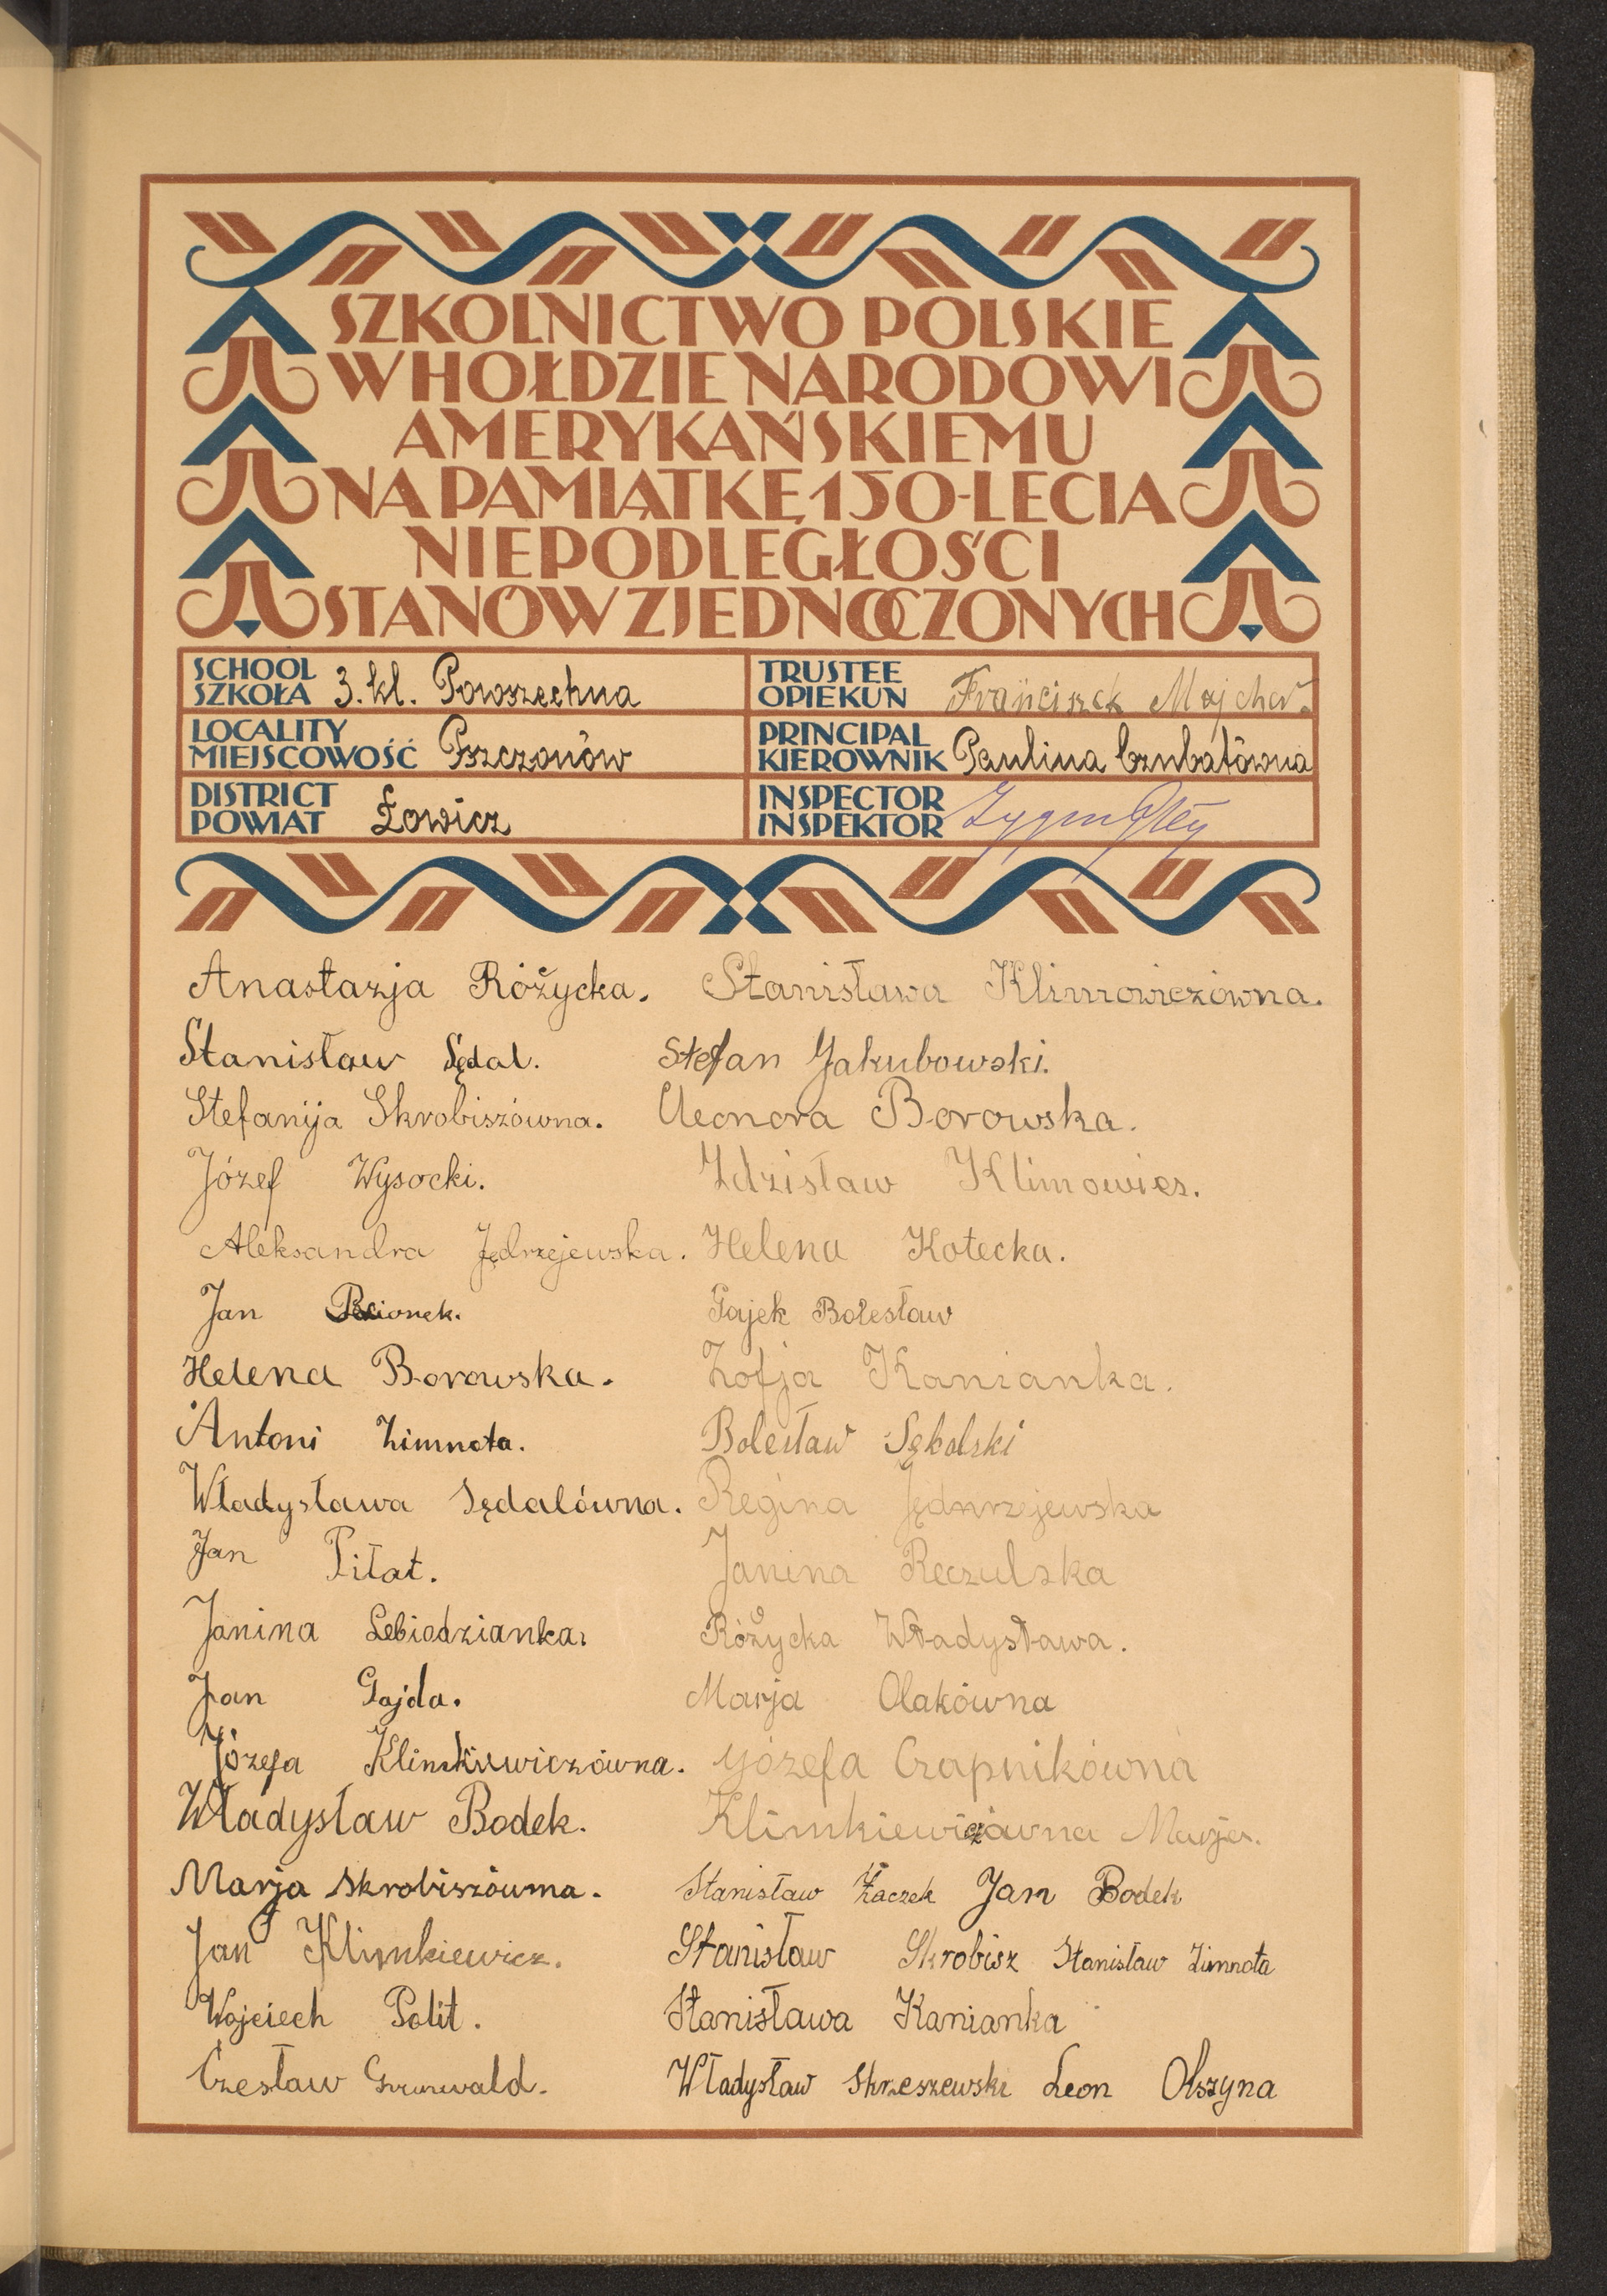 SZKOLNICTWO POLSKIE
W HOŁDZIE NARODOWI
AMERYKAŃSKIEMU
NA PAMIĄTKĘ 150-LECIA
NIEPODLEGŁOŚCI
STANÓW ZJEDNOCZONYCH
SCHOOL
SZKOŁA 3. kl. Powszechna
TRUSTEE
OPIEKUN Franciszek Majcher.
LOCALITY
MIEJSCOWOŚĆ Pszczonów
PRINCIPAL
KIEROWNIK Paulina Czubatówna
DISTRICT
POWIAT Łowicz
INSPECTOR
INSPEKTOR
Anastazja Różycka. Stanisława Klimowiczówna.
Stanisław Sędal. Stefan Jakubowski.
Stefanija Skrobiszówna. Eleonora Borowska.
Józef Wysocki. Zdzisław Klimowicz.
Aleksandra Jędrzejewska. Helena Kotecka.
Jan Gajek Bolesław
Helena Borowska. Zofja Kanianka.
Antoni Zimnota. Bolesław Sękolski
Władysława Sędalówna. Regina Jędnrzejewska
Jan Piłat. Janina Reczulska
Janina Lebiodzianka. Różycka Władysława.
Jan Gajda. Marja Olakówna
Józefa Klimkiewiczówna. Józefa Czapnikówna
Władysław Bodek. Klimkiewiczówna Marja.
Marja Skrobiszówna. Stanisław Żaczek Jan Bodek
Jan Klimkiewicz. Stanisław Skrobisz Stanisław Zimnota
Wojciech Polit. Stanisława Kanianka
Czesław Grunwald. Władysław Skrzeszewski Leon Olszyna